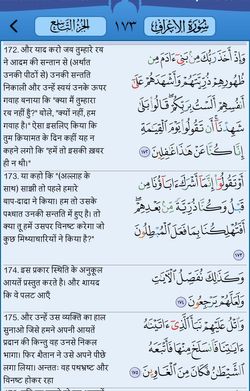 الجزء التاسع
١٧٣
سورة الأعراف
172. और याद करो जब तुम्हारे रब
ने आदम की सन्तान से (अर्थात
उनकी पीठों से) उनकी सन्तति
निकाली और उन्हें स्वयं उनके ऊपर
गवाह बनाया कि "क्या मैं तुम्हारा
रब नहीं हूँ?" बोले, "क्यों नहीं, हम
गवाह है।" ऐसा इसलिए किया कि
तुम क़ियामत के दिन कहीं यह न
कहने लगो कि "हमें तो इसकी ख़बर
ही न थी।"
وَإِذْ أَخَذَ رَبُّكَ مِنْ بَنِي ءَادَمَ مِن
ظُهُورِهِمْ ذُرِّيَّتَهُمْ وَأَشْهَدَهُمْ عَلَىٰ
أَنفُسِهِمْ أَلَسْتُ بِرَبِّكُمْ ۖ قَالُوا۟ بَلَىٰ
شَهِدْنَآ ۛ أَن تَقُولُوا۟ يَوْمَ ٱلْقِيَٰمَةِ
إِنَّا كُنَّا عَنْ هَٰذَا غَٰفِلِينَ ١٧٢
173. या कहो कि "(अल्लाह के
साथ) साझी तो पहले हमारे
बाप-दादा ने किया। हम तो उसके
पश्चात उनकी सन्तति में हुए है। तो
क्या तू हमें उसपर विनष्ट करेगा जो
कुछ मिथ्याचारियों ने किया है?"
أَوْ تَقُولُوٓا۟ إِنَّمَآ أَشْرَكَ ءَابَآؤُنَا مِن
قَبْلُ وَكُنَّا ذُرِّيَّةً مِّنۢ بَعْدِهِمْ ۖ
أَفَتُهْلِكُنَا بِمَا فَعَلَ ٱلْمُبْطِلُونَ
١٧٣
174. इस प्रकार स्थिति के अनुकूल
आयतें प्रस्तुत करते है। और शायद
कि वे पलट आएँ
وَكَذَٰلِكَ نُفَصِّلُ ٱلْـَٔايَٰتِ
وَلَعَلَّهُمْ يَرْجِعُونَ ١٧٤
175. और उन्हें उस व्यक्ति का हाल
सुनाओ जिसे हमने अपनी आयतें
प्रदान की किन्तु वह उनसे निकल
भागा। फिर शैतान ने उसे अपने पीछे
लगा लिया। अन्ततः वह पथभ्रष्ट और
विनष्ट होकर रहा
وَٱتْلُ عَلَيْهِمْ نَبَأَ ٱلَّذِىٓ ءَاتَيْنَٰهُ
ءَايَٰتِنَا فَٱنسَلَخَ مِنْهَا فَأَتْبَعَهُ
ٱلشَّيْطَٰنُ فَكَانَ مِنَ ٱلْغَاوِينَ ١٧٥